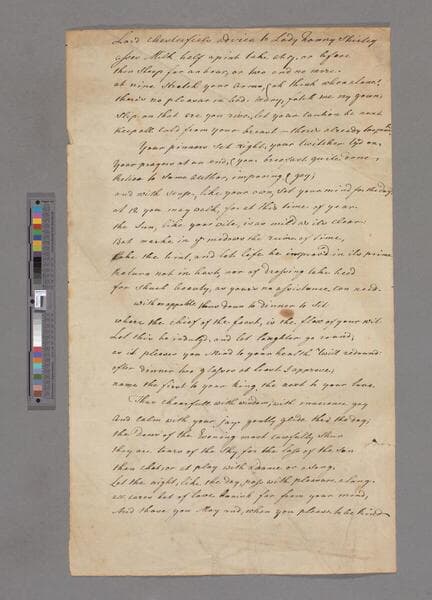 Lord Chesterfields advice to Lady Fanny Shirley
asses Milk half a pint take at 7, or before
then Sleep for an hour, or two and no more.
at nine Stretch your Arms, & oh think when alone
there's no pleasure in bed. Mary, fetch me my gown,
Slip on that ere you rise, let your caution be such
Keep all cold from your breast there's already too much
Your pinners Set right, your twitcher ty'd on,
Your prayers at an end, & your breakfast quite done,
Retire to Some Author, improving & gay,
and with Sense, like your own, Set your mind for the day
at 12 you may walk, for at this time of year
the Sun, like your wit, is as mild as its clear:
But marke in ye medows the ruine of time,
take the hint, and let life be improv'd in its prime
Return not in hast, nor of dressing take heed
for Shuch beauty, as yours no assistance can need.
With an appetite thus down to dinner to Sit
where the chief of the feast, is the flow of your wit
Let this be indulg'd, and let laughter go round,
as it pleases your Mind to your health 'twill redound
after dinner two glasses at least I approve,
name the first to your King, the next to your love.
Thus chearfull with wisdom, with innocence gay
And calm with your joys gently glide thro the day;
the Dews of the Evening most carefully Shun
they are tears of the Sky, for the loss of the Son
then chat, or at play with a dance or a Song,
Let the night, like the day, pass with pleasure along.
all cares but of love banish far from your mind,
And those you May end, when you please to be Kind